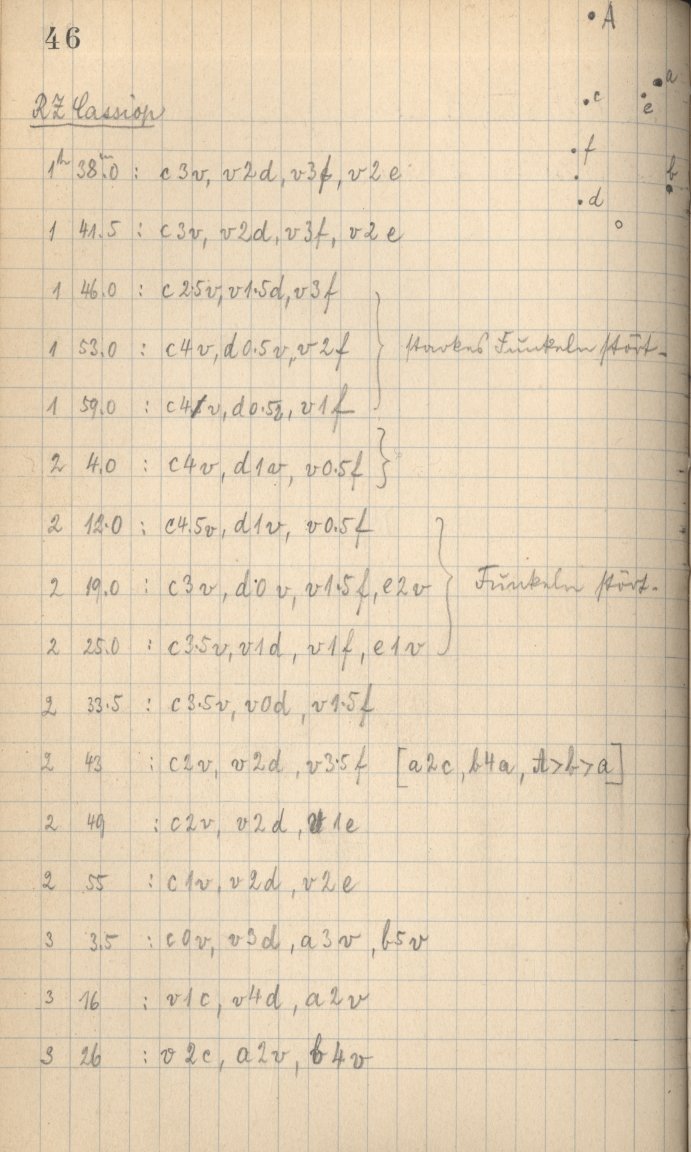 46
A
a
c
e
f
b
d
RZ Cassiop
1h 38m.0 : c3v, v2d, v3f, v2e
1 41.5 : c3v, v2d, v3f, v2e
1 46.0 : c2.5v, v1.5d, v3f
1 53.0 : c4v, d0.5v, v2f } starkes Funkeln stört.
1 59.0 : c4v, d0.5v, v1f
2 4.0 : c4v, d1v, v0.5f }
2 12.0 : c4.5v, d1v, v0.5f
2 19.0 : c3v, d0v, v1.5f, e2v } Funkeln stört.
2 25.0 : c3.5v, v1d, v1f, e1v
2 33.5 : c3.5v, v0d, v1.5f
2 43 : c2v, v2d, v3.5f [a2c, b4a, A>b>a]
2 49 : c2v, v2d, v1e
2 55 : c1v, v2d, v2e
3 3.5 : c0v, v3d, a3v, b5v
3 16 : v1c, v4d, a2v
3 26 : v2c, a2v, b4v